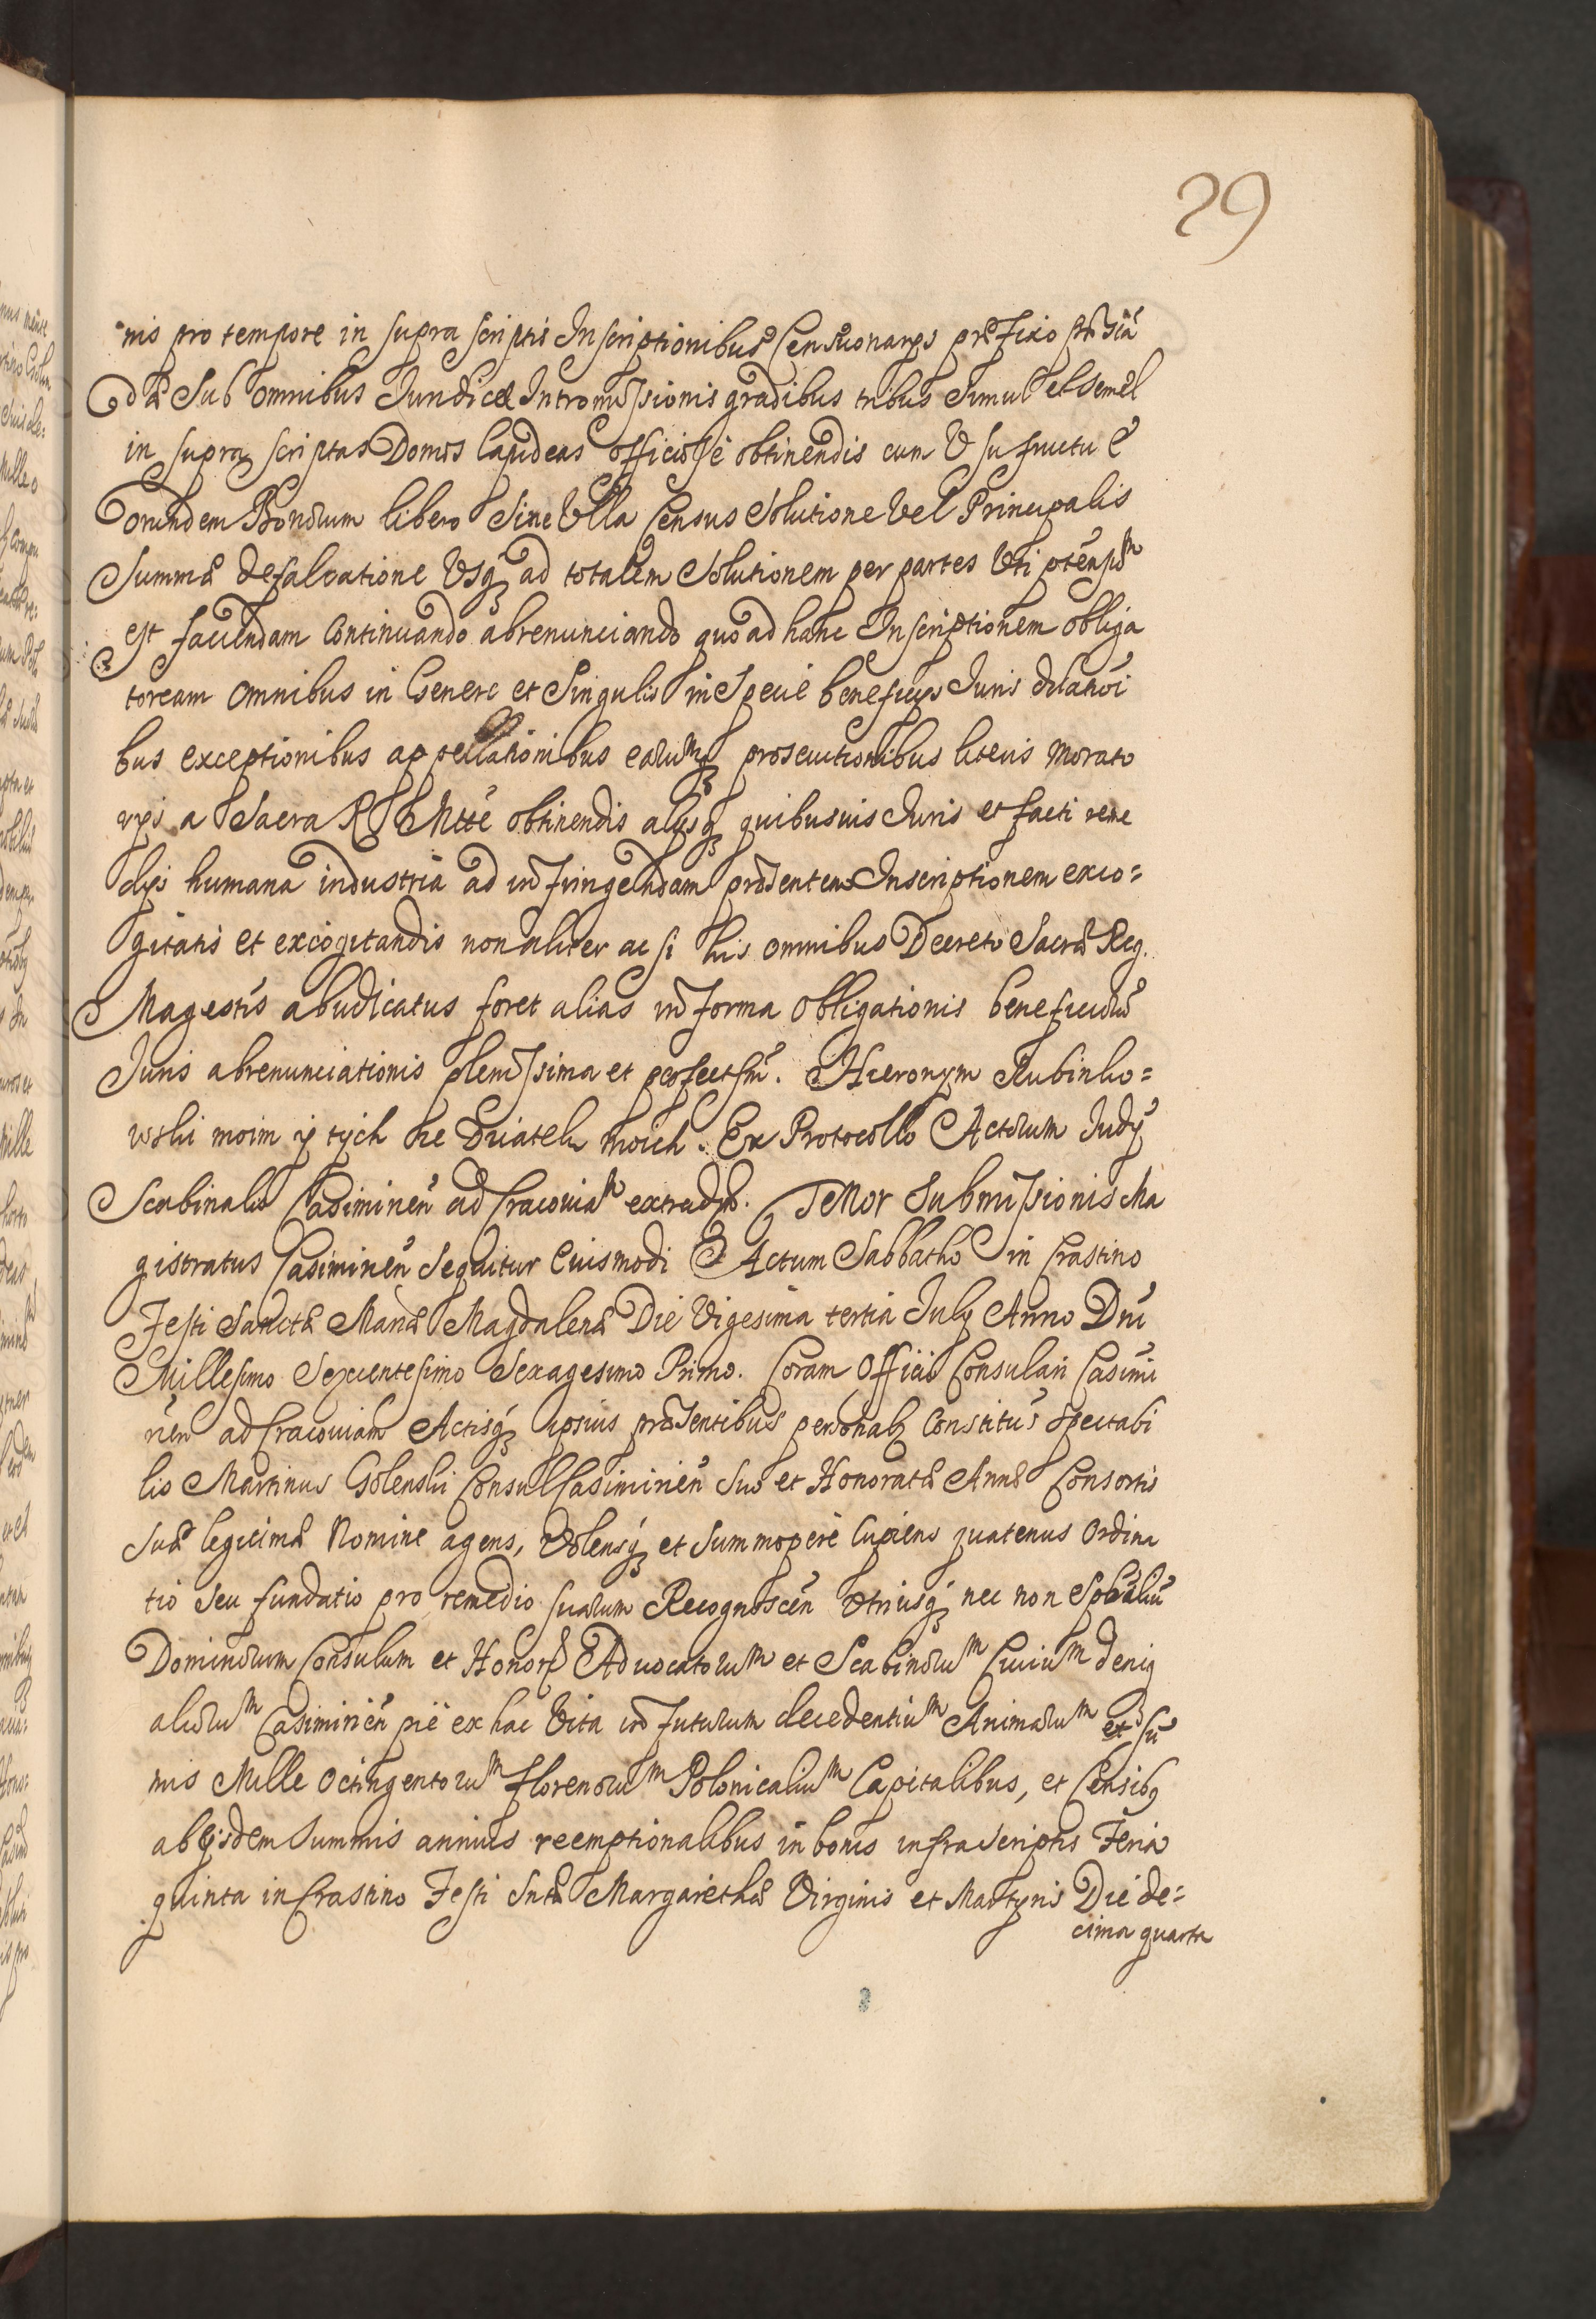 29
nis pro tempore in supra scriptis Inscriptionibus Censuonarys præfixo
dæ Sub omnibus Juridicæ Intromissionis gradibus tribus Simul et Semel
in supra scriptas Domos lapideas officiose obtinendis cum Usufructu e
orundem Bonorum libero Sine Ulla Census Solutione Vel Principalis
Summæ defalcatione Usq3 ad totalem Solutionem per partes Uti
est faciendam Continuando abrenunciando quo ad hanc Inscriptionem obliga
toream omnibus in Genere et Singulis in Specie beneficys Juris dilatoi
bus exceptionibus appellationibus earumq3 prosecutionibus literis Morato
rys a Sacra R Mtte obtinendis alysq3 quibusuis Juris et facti reme
dys humana industria ad infringendam præsentem Inscriptionem exco=
gitatis et excogitandis non aliter ac si his omnibus Decreto Sacræ Reg.
Magestis abiudicatus foret alias in forma obligationis beneficioru
Juris abrenunciationis plenissima et perfectsm̃. Hieronym Rubinko=
wski moim y tych ze Dziatek moich. Ex Protocollo Actorum Judy
Scabinalis Casimirień ad Cracouiam extradt. Tenor Submissionis Ma
gistratus Casimirień Sequitur Euismodi Actum Sabbatho in Crastino
Festi Sanctæ Mariæ Magdalenæ Die Vigesima tertia July Anno Dni
Millesimo Sexcentesimo Sexagesimo Primo. Coram Officio Consulari Casimi
rień ad Cracouiam Actisq3 ipsius præsentibus personalr Constitus Spectabi
lis Martinus Golenski Consul Casimirień Suo et Honoratæ Annæ Consortis
Suæ legitimæ Nomine agens, Volensq3 et Summopere Cupiens quatenus Ordina
tio Seu fundatio pro remedio suarum Recognoscen Utriusq3 nec non Spbāliū
Dominorum Consulum et Honor Aduocatorum et Scabinorum Ciuium deniq
aliorum Casimirień pie ex hac Vita in futurum decedentium Animarum et sū
mis Mille Octingentorum florenorum Polonicalium Capitalibus, et Censibq
ab ijsdem Summis annuis reemptionalibus in bonis infrascriptis Feria
quinta in Crastino Festi Sntæ Margarethæ Virginis et Martyris Die de=
cima quarta